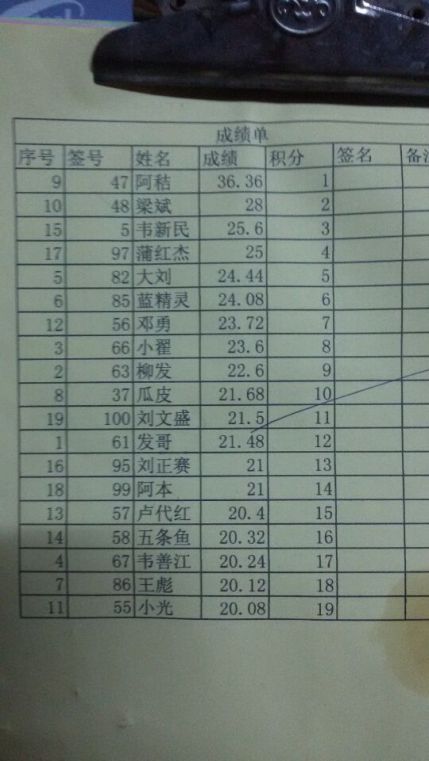 成绩单
序号 签号 姓名 成绩 积分 签名 备注
9 47 阿秸 36.36 1
10 48 梁斌 28 2
15 5 韦新民 25.6 3
17 97 蒲红杰 25 4
5 82 大刘 24.44 5
6 85 蓝精灵 24.08 6
12 56 邓勇 23.72 7
3 66 小翟 23.6 8
2 63 柳发 22.6 9
8 37 瓜皮 21.68 10
19 100 刘文盛 21.5 11
1 61 发哥 21.48 12
16 95 刘正赛 21 13
18 99 阿本 21 14
13 57 卢代红 20.4 15
14 58 五条鱼 20.32 16
4 67 韦善江 20.24 17
7 86 王彪 20.12 18
11 55 小光 20.08 19